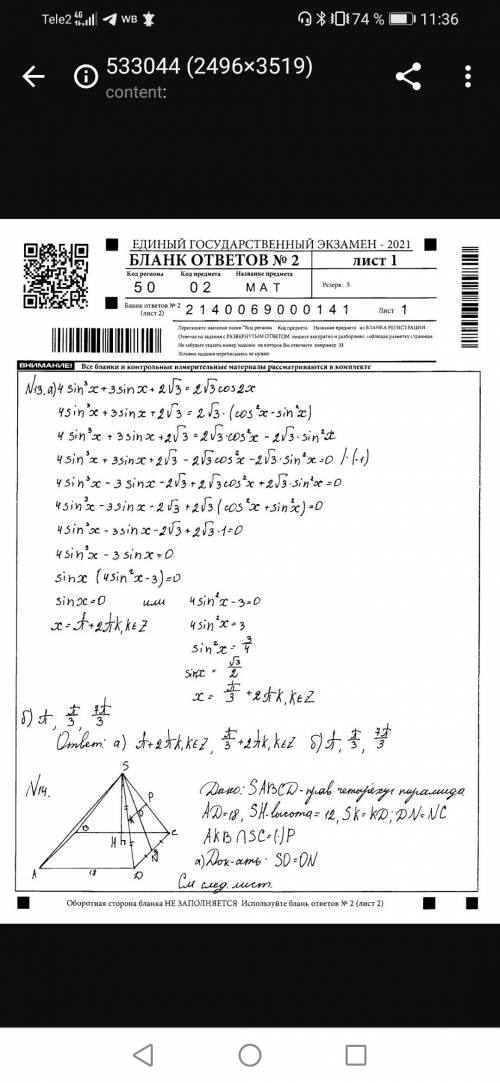 Tele2 4G WB 74 % 11:36
533044 (2496×3519)
content:
ЕДИНЫЙ ГОСУДАРСТВЕННЫЙ ЭКЗАМЕН - 2021
БЛАНК ОТВЕТОВ № 2 лист 1
Код региона Код предмета Название предмета
50 02 МАТ Резерв 5
Бланк ответов № 2 (лист 2) 2140069000141 Лист 1
Перепишите значения полей "Код региона Код предмета Название предмета из БЛАНКА РЕГИСТРАЦИИ
Отвечая на задания с РАЗВЕРНУТЫМ ОТВЕТОМ пишите аккуратно и разборчиво соблюдая разметку страницы
Не забудьте указать номер задания на которое Вы отвечаете например 31
Условия задания переписывать не нужно
ВНИМАНИЕ! Все бланки и контрольные измерительные материалы рассматриваются в комплекте
N13. а) 4sin³x+3sinx+2√3=2√3cos2x
4sin³x+3sinx+2√3=2√3·(cos²x-sin²x)
4sin³x+3sinx+2√3=2√3cos²x-2√3·sin²x
4sin³x+3sinx+2√3-2√3cos²x-2√3·sin²x=0 /·(-1)
4sin³x-3sinx-2√3+2√3cos²x+2√3·sin²x=0
4sin³x-3sinx-2√3+2√3(cos²x+sin²x)=0
4sin³x-3sinx-2√3+2√3·1=0
4sin³x-3sinx=0
sinx(4sin²x-3)=0
sinx=0 или 4sin²x-3=0
x=π+2πk, k∈Z 4sin²x=3
sin²x=3/4
sinx=√3/2
x=π/3+2πk, k∈Z
б) π, π/3, 7π/3
Ответ: а) π+2πk, k∈Z, π/3+2πk, k∈Z б) π, π/3, 7π/3
N14. S P K B C H N A 18 D
Дано: SABCD-прав четырёхуг пирамида
AD=18, SH-высота=12, SK=KD; DN=NC
AKB∩SC=(·)P
а) Док-ать: SO=ON
См след. лист.
Оборотная сторона бланка НЕ ЗАПОЛНЯЕТСЯ Используйте бланк ответов № 2 (лист 2)